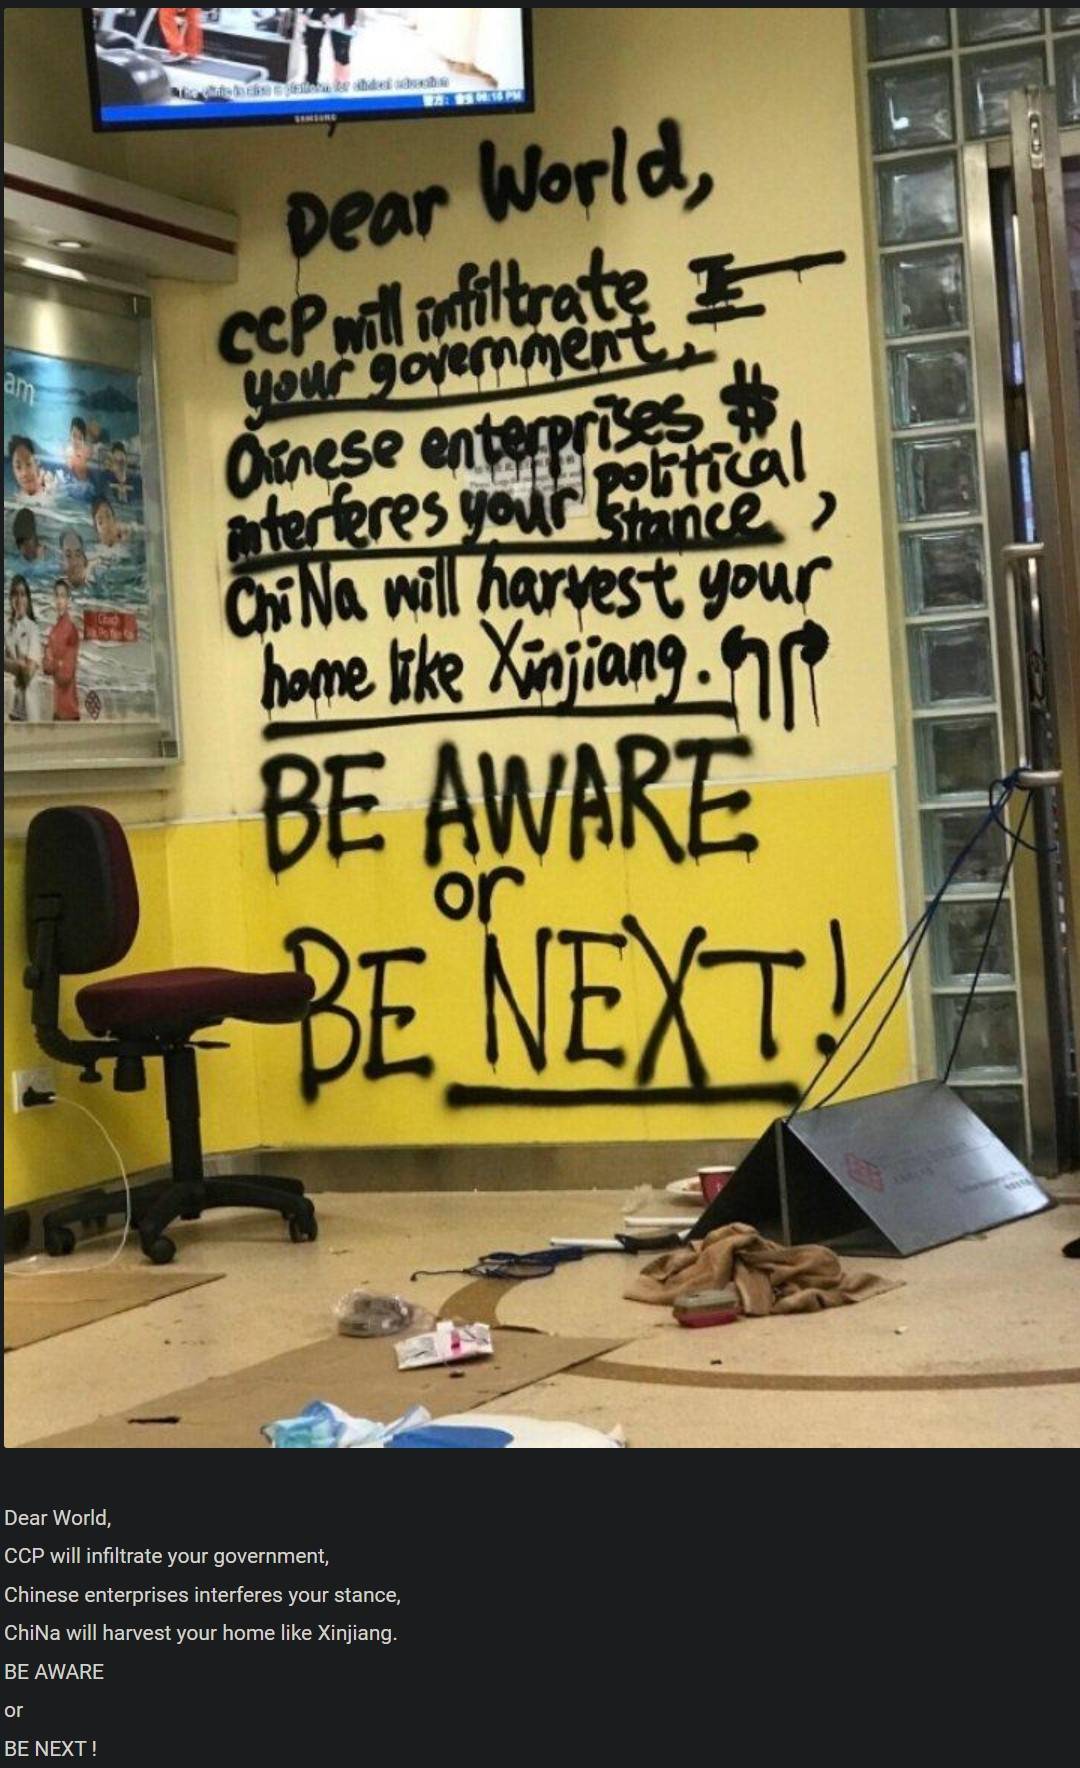 The clinic is also a platform for clinical education
06:10 PM
SAMSUNG
Dear World,
CCP will infiltrate
your government,
Chinese enterprises $
interferes your political
stance,
ChiNa will harvest your
home like Xinjiang.
BE AWARE
or
BE NEXT!
am
Coach
Dear World,
CCP will infiltrate your government,
Chinese enterprises interferes your stance,
ChiNa will harvest your home like Xinjiang.
BE AWARE
or
BE NEXT !